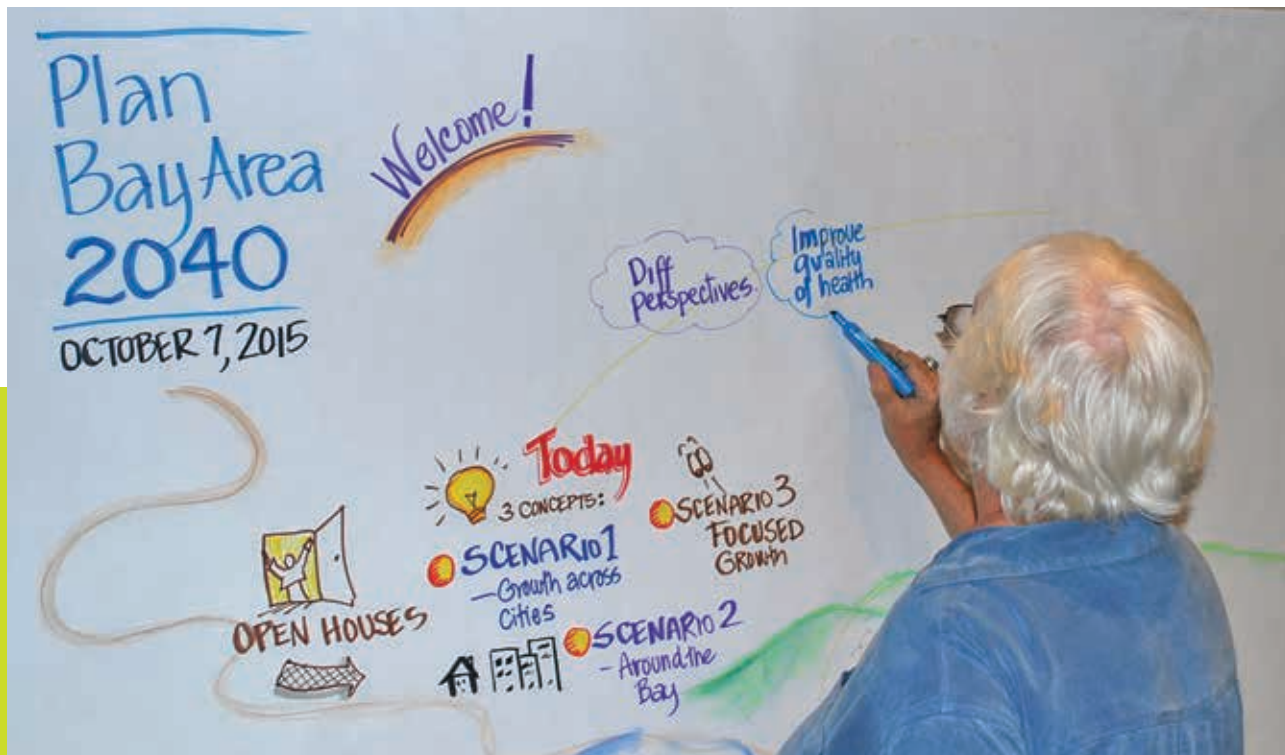 Plan
Bay Area
2040
OCTOBER 7, 2015
Welcome!
Diff
perspectives
Improve
quality
of health
Today
3 CONCEPTS:
SCENARIO 1
- Growth across
Cities
SCENARIO 2
- Around the
Bay
SCENARIO 3
FOCUSED
GROWTH
OPEN HOUSES